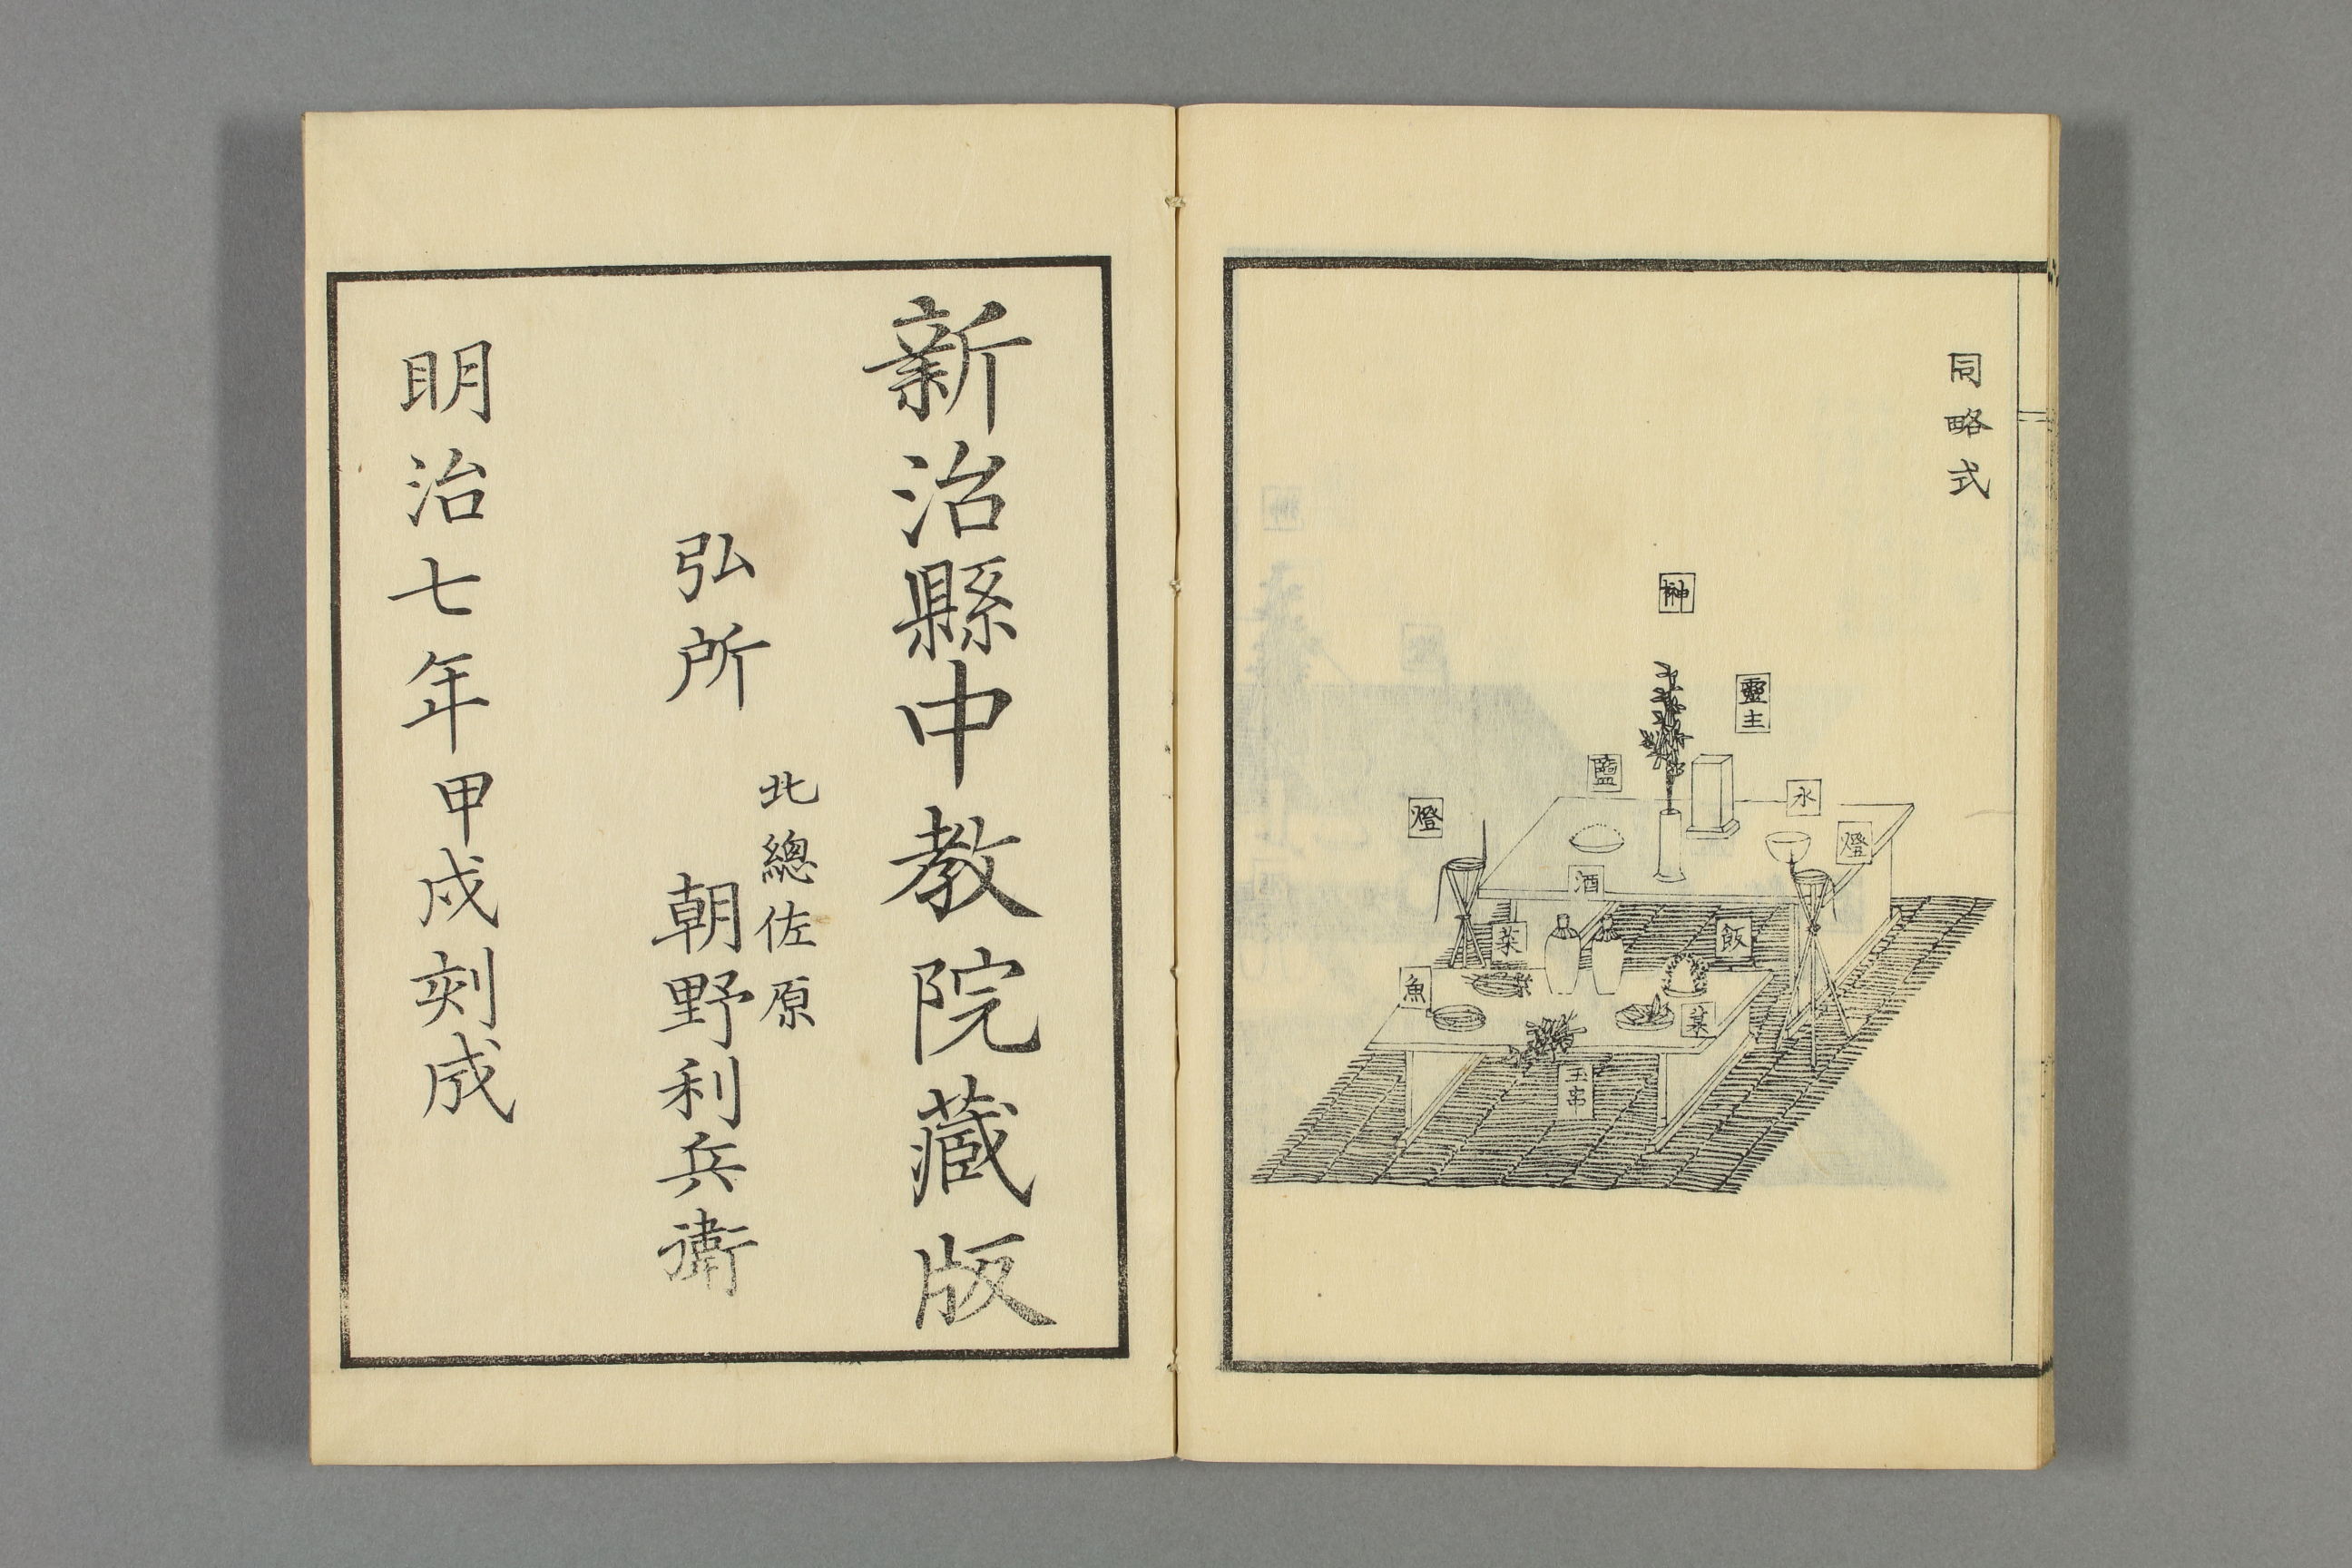 同略式
榊
靈主
鹽
水
燈
燈
酒
菜
飯
魚
菓
玉串
新治縣中教院藏版
弘所
北總佐原
朝野利兵衛
明治七年甲戌刻成